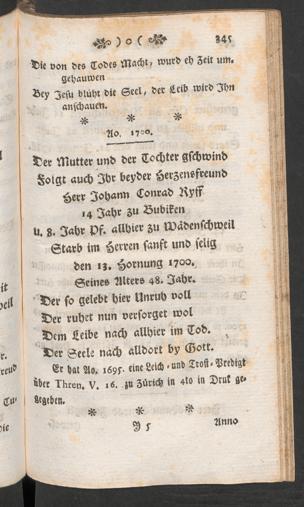 ) o ( 345
Die von des Todes Macht, wurd eh Zeit um-
gehauwen
Bey Jesu blüht die Seel, der Leib wird Ihn
anschauen.
* * *
Ao. 1700.
Der Mutter und der Tochter gschwind
Folgt auch Ihr beyder Herzensfreund
Herr Johann Conrad Ryff
14 Jahr zu Bubiken
u. 8. Jahr Pf. allhier zu Wädenschweil
Starb im Herren sanft und selig
den 13. Hornung 1700.
Seines Alters 48. Jahr.
Der so gelebt hier Unruh voll
Der ruhet nun versorget wol
Dem Leibe nach allhier im Tod.
Der Seele nach alldort by Gott.
Er hat Ao. 1695. eine Leich- und Trost-Predigt
über Thren. V. 16. zu Zürich in 4to in Druk ge-
gegeben.
* * *
Y 5 Anno